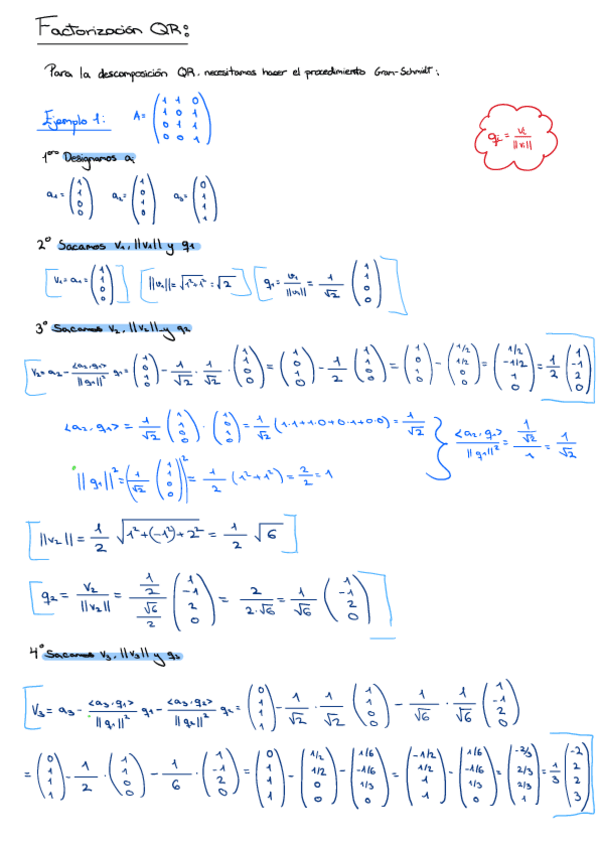 Factorización QR:
Para la descomposición QR, necesitamos hacer el procedimiento Gram-Schmidt:
Ejemplo 1: A = (1 1 0; 1 0 1; 0 1 1; 0 0 1)
qi = vi / ||vi||
1ero Designamos ai
a1 = (1 1 0 0) a2 = (1 0 1 0) a3 = (0 1 1 1)
2º Sacamos v1, ||v1|| y q1
[v1 = a1 = (1 1 0 0)] [||v1|| = √1²+1² = √2] [q1 = v1/||v1|| = 1/√2 (1 1 0 0)]
3º Sacamos v2, ||v2|| y q2
[v2 = a2 - <a2·q1>/||q1||² q1 = (1 0 1 0) - 1/√2 · 1/√2 · (1 1 0 0) = (1 0 1 0) - 1/2 (1 1 0 0) = (1 0 1 0) - (1/2 1/2 0 0) = (1/2 -1/2 1 0) = 1/2 (1 -1 2 0)]
<a2·q1> = 1/√2 (1 1 0 0) · (1 0 1 0) = 1/√2 (1·1+1·0+0·1+0·0) = 1/√2
<a2·q1>/||q1||² = 1/√2 / 1 = 1/√2
||q1||² = (1/√2 (1 1 0 0))² = 1/2 (1²+1²) = 2/2 = 1
[||v2|| = 1/2 √1²+(-1²)+2² = 1/2 √6]
[q2 = v2/||v2|| = 1/2 / √6/2 (1 -1 2 0) = 2/2·√6 = 1/√6 (1 -1 2 0)]
4º Sacamos v3, ||v3|| y q3
[V3 = a3 - <a3·q1>/||q1||² q1 - <a3·q2>/||q2||² q2 = (0 1 1 1) - 1/√2 · 1/√2 (1 1 0 0) - 1/√6 · 1/√6 (1 -1 2 0)
= (0 1 1 1) - 1/2 · (1 1 0 0) - 1/6 · (1 -1 2 0) = (0 1 1 1) - (1/2 1/2 0 0) - (1/6 -1/6 1/3 0) = (-1/2 1/2 1 1) - (1/6 -1/6 1/3 0) = (-2/3 2/3 2/3 1) = 1/3 (-2 2 2 3)]